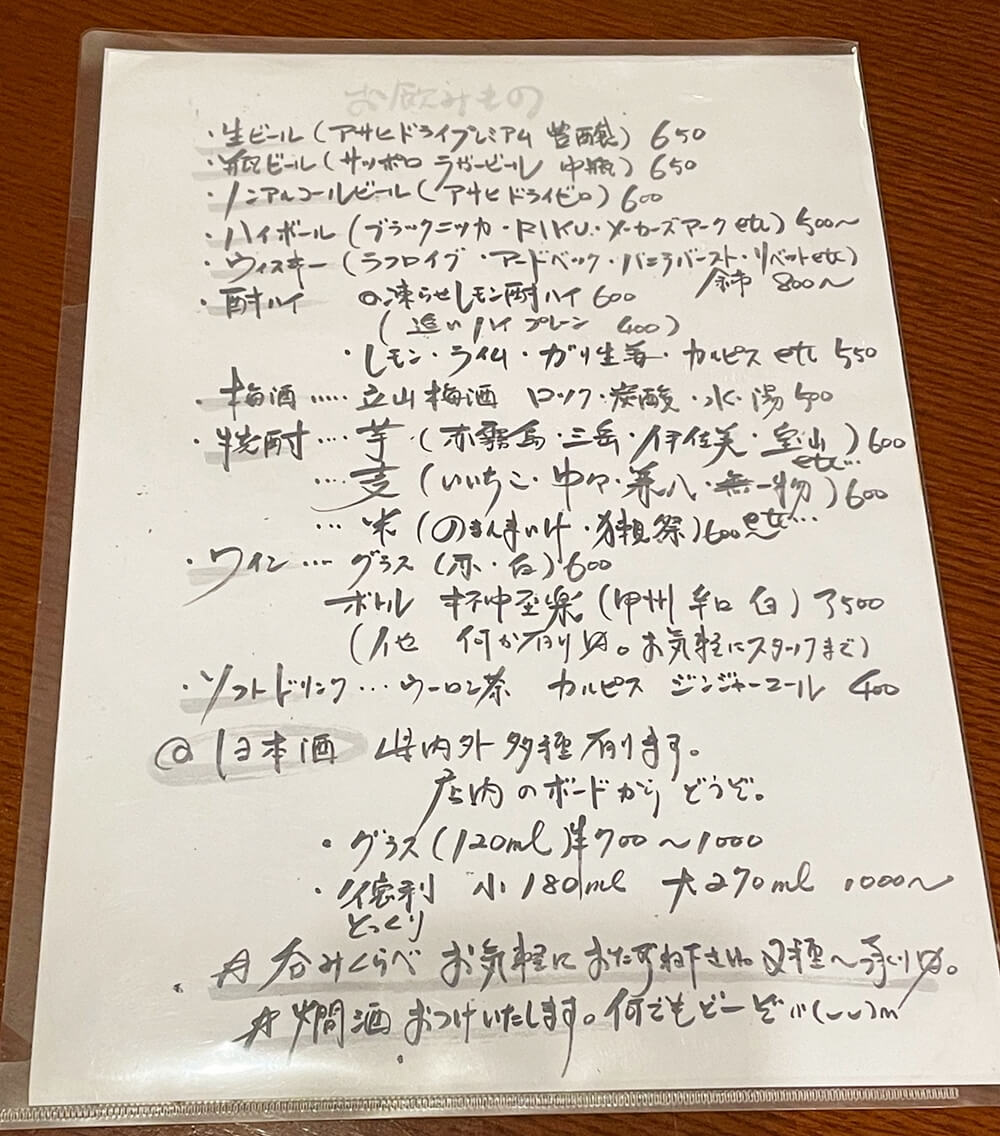 お飲みもの
・生ビール（アサヒドライプレミアム 豊醸）650
・瓶ビール（サッポロ ラガービール 中瓶）650
・ノンアルコールビール（アサヒドライゼロ）600
・ハイボール（ブラックニッカ・RIKU・メーカーズアーク etc）500〜
・ウィスキー（ラフロイグ・アードベック・バニラバースト・リベット etc）
・酎ハイ ◎凍らせレモン酎ハイ 600 余市 800〜
（追いハイ プレーン 400）
・レモン・ライム・ガリ生姜・カルピス etc 550
・梅酒‥‥ 立山梅酒 ロック・炭酸・水・湯 500
・焼酎… 芋（赤霧島・三岳・伊佐美・宝山 etc…）600
…麦（いいちこ・中々・兼八・無一物）600
…米（のまんまいけ・獺祭）600 etc…
・ワイン… グラス（赤・白）600
ボトル 杯中至楽（甲州 辛口 白）3500
（他 何か有り〼。お気軽にスタッフまで）
・ソフトドリンク… ウーロン茶 カルピス ジンジャーエール 400
◎日本酒 県内外多種有ります。
店内のボードから どうぞ。
・グラス（120ml）半 700〜1000
・徳利 小180ml 大270ml 1000〜
とっくり
呑みくらべ お気軽におたずね下さい 2種〜承り〼。
燗酒 おつけいたします。何でもどーぞ